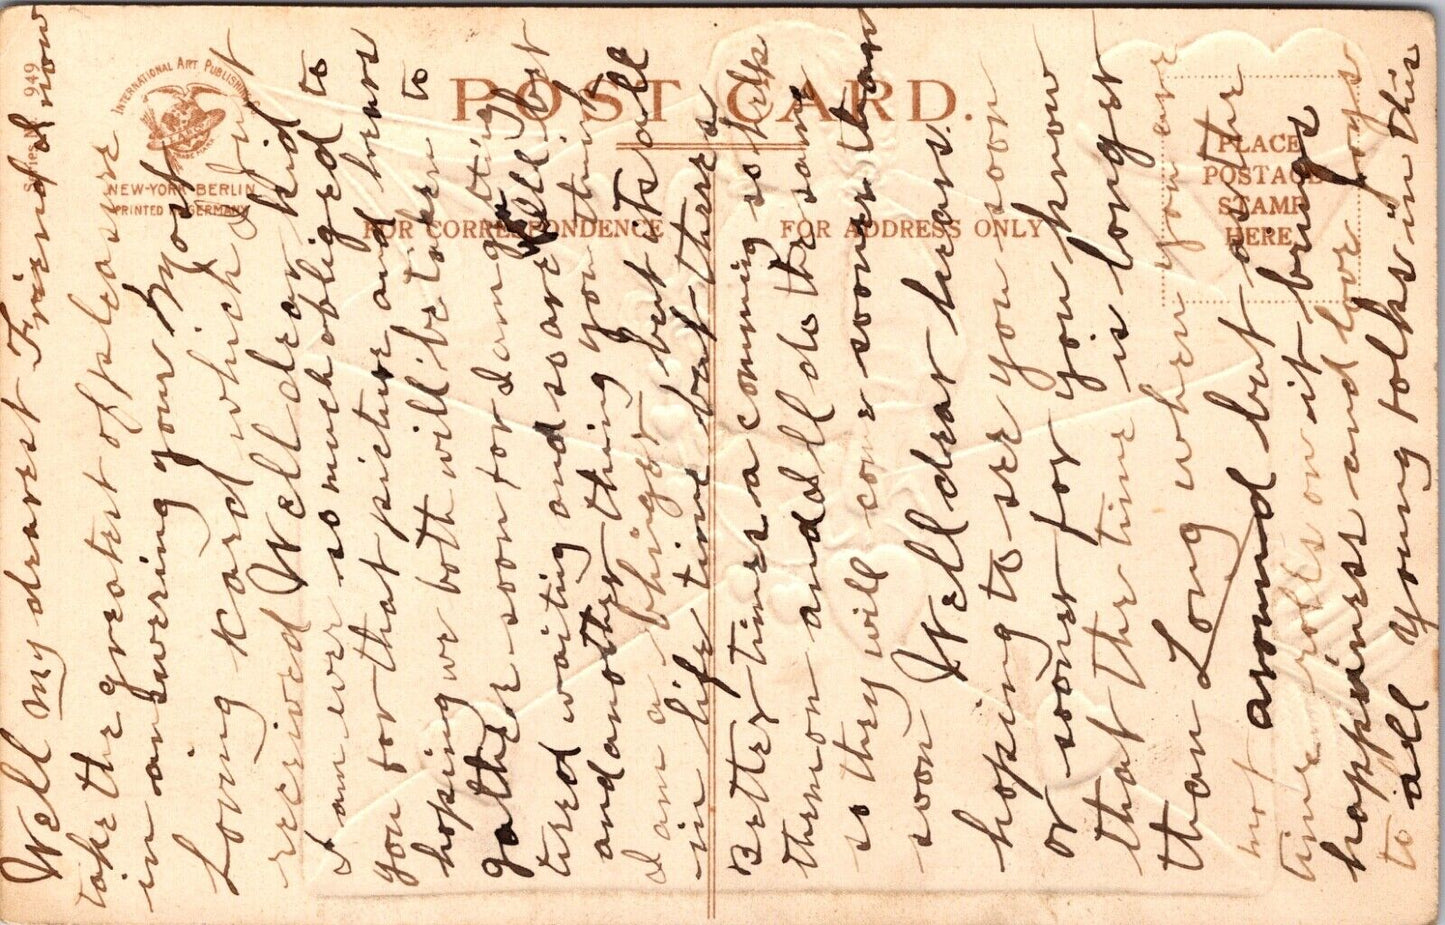 POST CARD.
FOR CORRESPONDENCE
FOR ADDRESS ONLY
PLACE
POSTAGE
STAMP
HERE
INTERNATIONAL ART PUBLISHING
NEW-YORK BERLIN
PRINTED IN GERMANY
Series 949
Well My dearest Friend now
take the greatest of pleasure
in answering your Most
Loving kard which Just
received Well dear kid
I am ever so much obliged to
you for that picture and hears
hoping we both will be taken to
gather soon for I am getting
tired waiting and so are you
and another thing you think
I am a but its all
in life time but theres
Better times a comming so help
them on and all do the same
so they will come sooner than
soon Well dear hears
hoping to see you soon
or sooner for you know
that the time is longer
than Long when you are
not around but as the
time rolls on it brings
happiness and love Joys
to all young folks in this